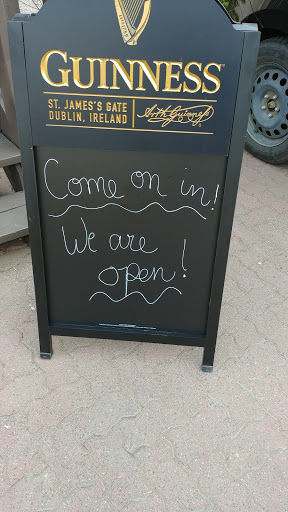 GUINNESS
ST. JAMES'S GATE
DUBLIN, IRELAND
Arth Guinness
Come on in!
We are
open!